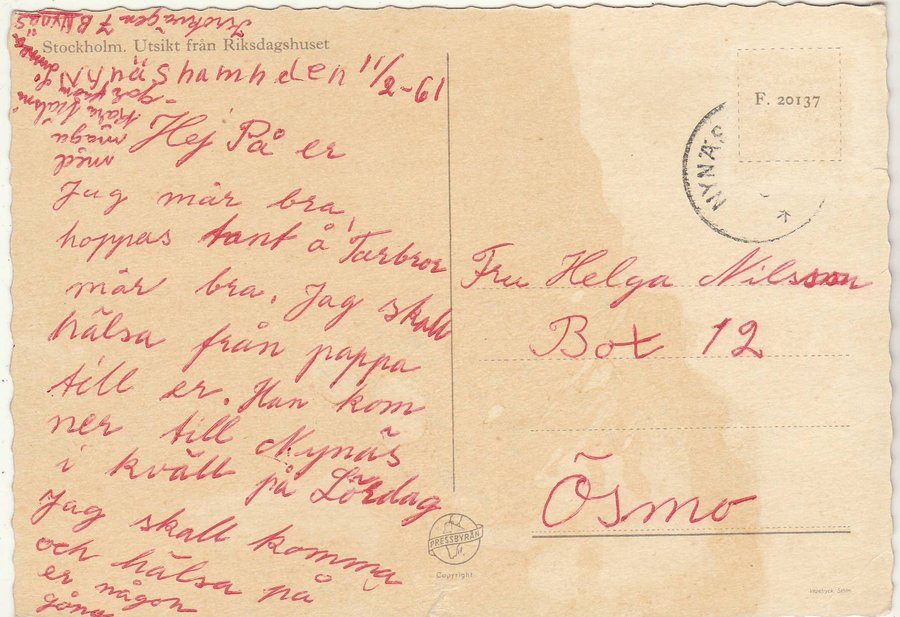 Stockholm. Utsikt från Riksdagshuset
Nynäshamnden 11/2-61
Hej På er
Jag mår bra,
hoppas tant å Farbror
mår bra. Jag skall
hälsa från pappa
till er. Han kom
ner till Nynäs
i kväll på Lördag
Jag skall komma
och hälsa på
er någon
gång
med
många
7 B Nynäs
F. 20137
NYNÄS
Fru Helga Nilsson
Box 12
Ösmo
PRESSBYRÅN
Copyright